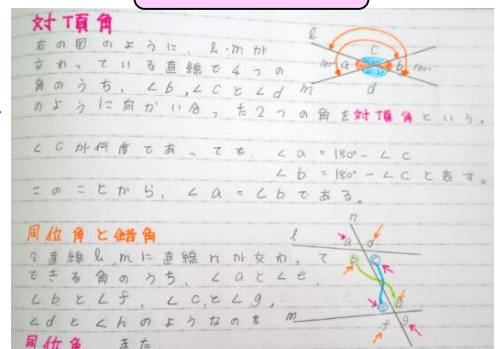 対頂角
右の図のように、l・mが
交わっている直線で4つの
角のうち、∠b、∠cと∠d
のように向かい合った2つの角を対頂角という。
∠cが何度であっても、∠a = 180° - ∠c
∠b = 180° - ∠cと表す。
このことから、∠a = ∠bである。
同位角と錯角
2直線l、mに直線nが交わって
できる角のうち、∠aと∠e、
∠bと∠f、∠cと∠g、
∠dと∠hのようなのを
同位角、また
l
c
180°
a
b
180°
m
d
n
l
a
d
b
c
m
f
g